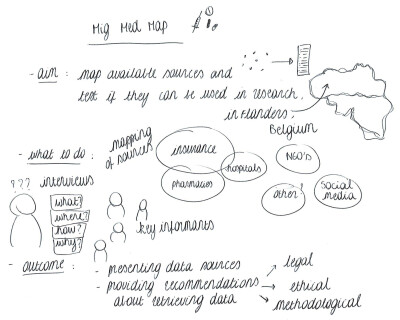 Mig Med Map
- aim : map available sources and
test if they can be used in research,
in Flanders,
Belgium
- what to do : mapping
of sources
insurance
hospitals
pharmacies
NGO's
other?
social
media
??? interviews
what?
where?
how?
why?
key informants
- outcome : - presenting data sources
- providing recommendations
about retrieving data
legal
ethical
methodological